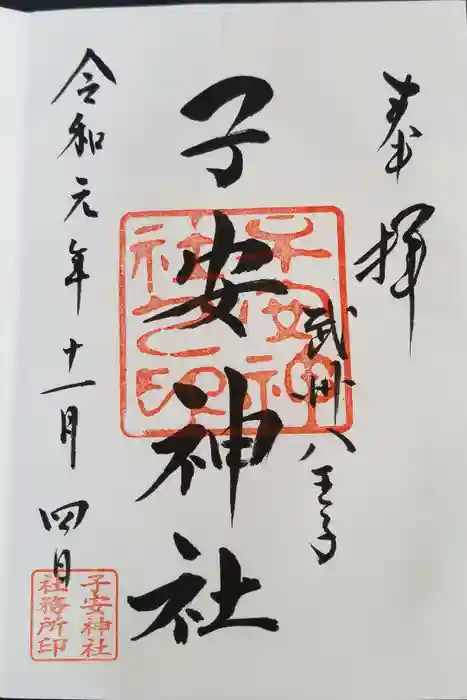 奉拝
武州八王子
子安神社
令和元年十一月四日
子安神
社之印
子安神社
社務所印